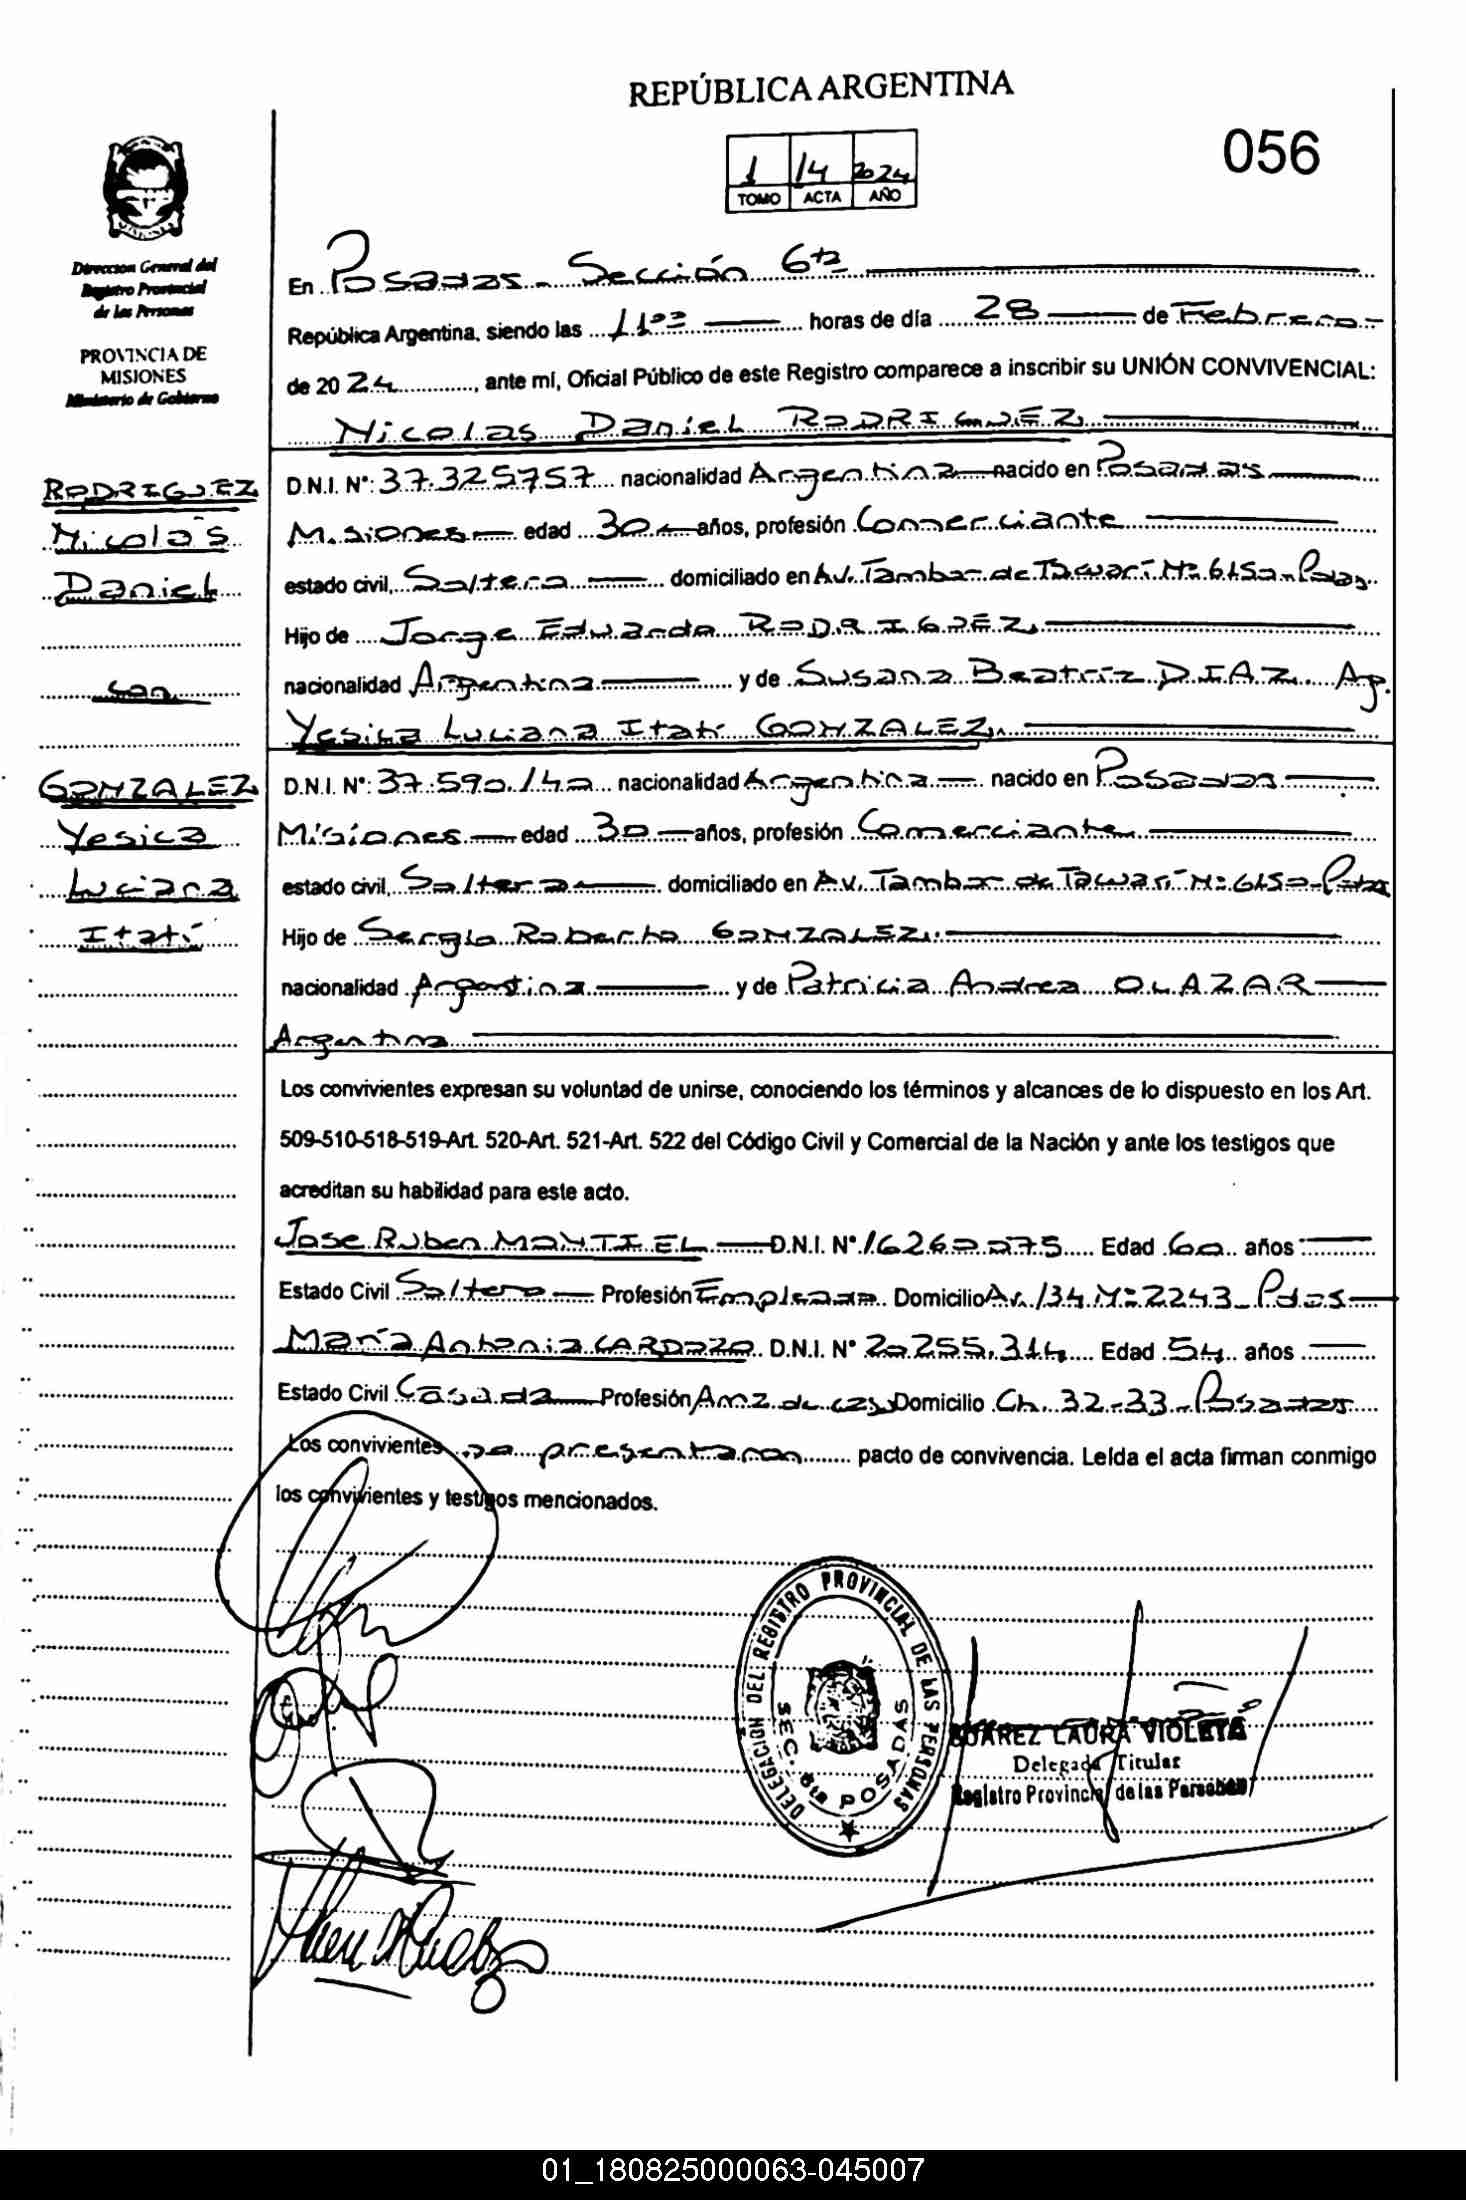 REPÚBLICA ARGENTINA
056
1 14 2024
TOMO ACTA AÑO
Direccion General del
Registro Provincial
de las Personas
PROVINCIA DE
MISIONES
Ministerio de Gobierno
En Posadas - Sección 6ta
República Argentina, siendo las 11ºº horas de día 28 de Febrero
de 2024, ante mí, Oficial Público de este Registro comparece a inscribir su UNIÓN CONVIVENCIAL:
Nicolas Daniel RODRIGUEZ
RODRIGUEZ
Nicolás
Daniel
con
GONZALEZ
Yesica
Luciana
Itatí
D.N.I. Nº: 37.325757 nacionalidad Argentina nacido en Posadas
Misiones edad 30 años, profesión Comerciante
estado civil, Soltero domiciliado en Av. Tambor de Tacuarí Nº 6150 - Pdas.
Hijo de Jorge Eduardo RODRIGUEZ,
nacionalidad Argentina y de Susana Beatriz DIAZ Ag.
Yesica Luciana Itatí GONZALEZ,
D.N.I. Nº: 37.590.140 nacionalidad Argentina nacido en Posadas
Misiones edad 30 años, profesión Comerciante
estado civil, Soltera domiciliado en Av. Tambor de Tacuarí Nº 6150 - Pdas
Hijo de Sergio Roberto GONZALEZ
nacionalidad Argentina y de Patricia Andrea OLAZAR
Argentina
Los convivientes expresan su voluntad de unirse, conociendo los términos y alcances de lo dispuesto en los Art.
509-510-518-519-Art. 520-Art. 521-Art. 522 del Código Civil y Comercial de la Nación y ante los testigos que
acreditan su habilidad para este acto.
Jose Ruben MONTIEL D.N.I. Nº 16260075 Edad 60 años
Estado Civil Soltero Profesión Empleado Domicilio Av. 134 Nº 2243 - Pdas
María Antonia CARDOZO D.N.I. Nº 20.255.314 Edad 54 años
Estado Civil Casada Profesión Ama de casa Domicilio Ch. 32-33 - Posadas
Los convivientes no presentaron pacto de convivencia. Leída el acta firman conmigo
los convivientes y testigos mencionados.
DELEGACION DEL REGISTRO PROVINCIAL DE LAS PERSONAS
SEC. 6ta POSADAS
SUAREZ LAURA VIOLETA
Delegada Titular
Registro Provincial de las Personas
01_180825000063-045007